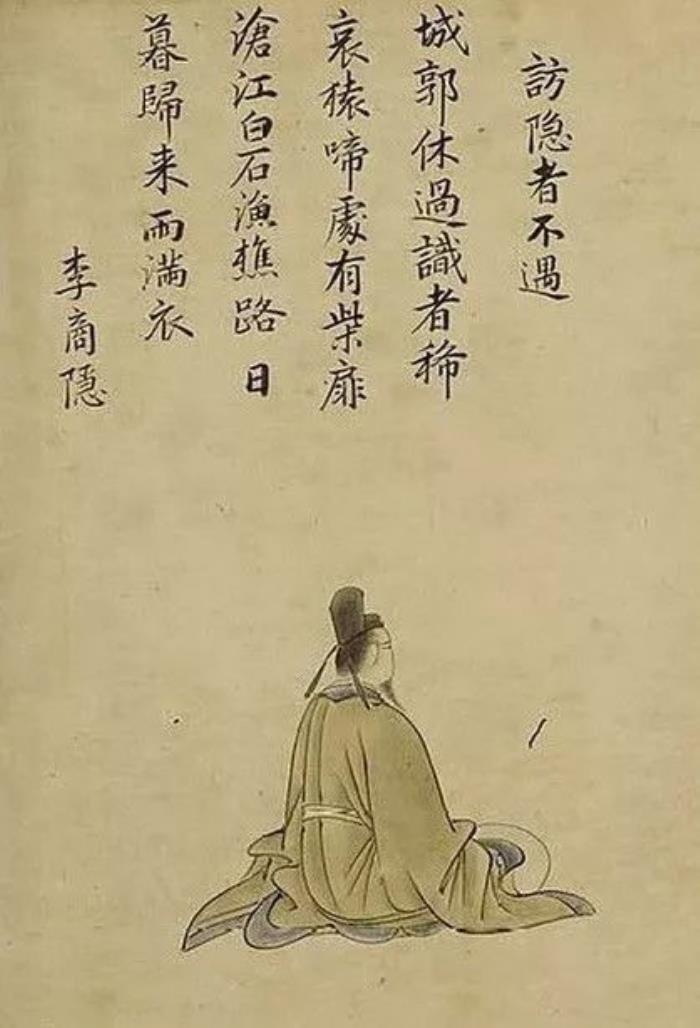 訪隐者不遇
城郭休過識者稀
哀猿啼處有柴扉
滄江白石漁樵路日
暮歸来雨满衣
李商隱